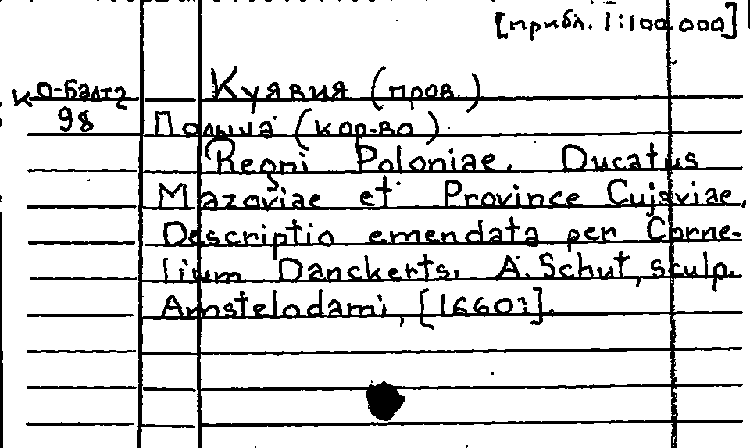 [прибл. 1:100.000]
К О-Балт 2
98
Куявия (пров.)
Польша (кор-во).
Regni Poloniae. Ducatus
Mazoviae et Province Cujaviae.
Descriptio emendata per Corne-
lium Danckerts. A. Schut, sculp.
Amstelodami, [1660?].